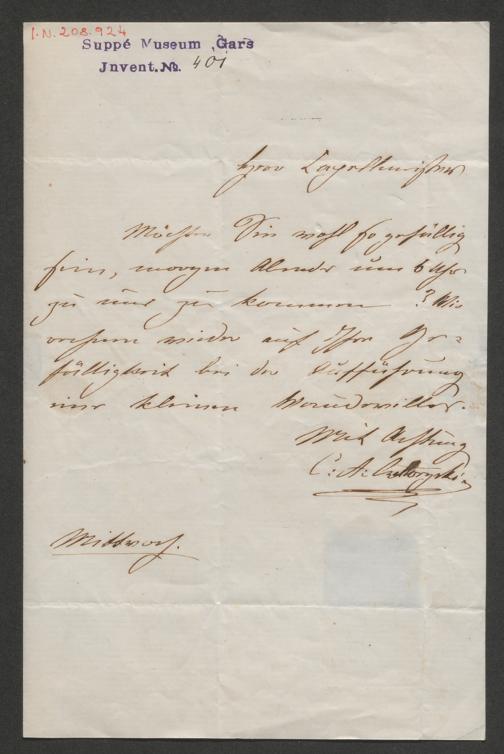 I.N. 208.924
Suppé Museum Gars
Invent.No. 401
Herr Capellmeister
Möchten Sie wohl so gefällig
sein, morgen Abends um 6 Uhr
zu mir zu kommen ? Wir
rechnen wieder auf Ihre Ge=
fälligkeit bei der Aufführung
eines kleinen Vaudevilles.
Mit Achtung
C: A:
Mittwoch.